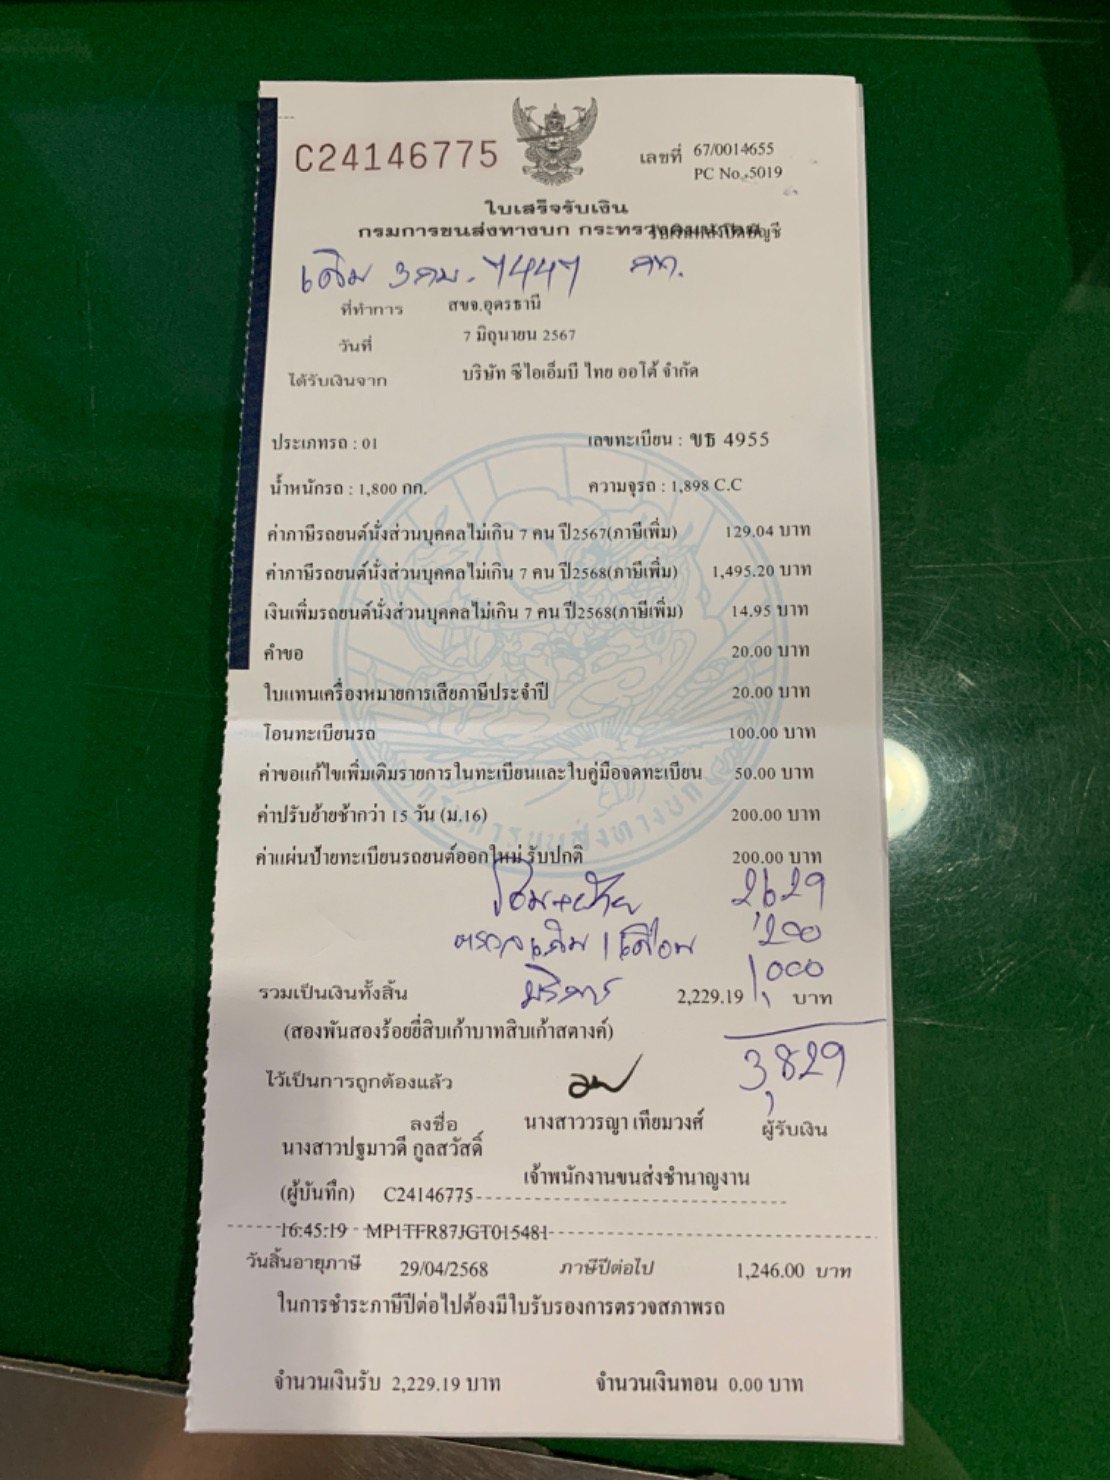 C24146775
เลขที่ 67/0014655
PC No. 5019
ใบเสร็จรับเงิน
กรมการขนส่งทางบก กระทรวงคมนาคม
รับเงินหลังปิดบัญชี
เดิม 3กบ-7447 กท.
ที่ทำการ สขจ.อุดรธานี
วันที่ 7 มิถุนายน 2567
ได้รับเงินจาก บริษัท ซีไอเอ็มบี ไทย ออโต้ จำกัด
ประเภทรถ : 01 เลขทะเบียน : ขธ 4955
น้ำหนักรถ : 1,800 กก. ความจุรถ : 1,898 C.C
ค่าภาษีรถยนต์นั่งส่วนบุคคลไม่เกิน 7 คน ปี2567(ภาษีเพิ่ม) 129.04 บาท
ค่าภาษีรถยนต์นั่งส่วนบุคคลไม่เกิน 7 คน ปี2568(ภาษีเพิ่ม) 1,495.20 บาท
เงินเพิ่มรถยนต์นั่งส่วนบุคคลไม่เกิน 7 คน ปี2568(ภาษีเพิ่ม) 14.95 บาท
คำขอ 20.00 บาท
ใบแทนเครื่องหมายการเสียภาษีประจำปี 20.00 บาท
โอนทะเบียนรถ 100.00 บาท
ค่าขอแก้ไขเพิ่มเติมรายการในทะเบียนและใบคู่มือจดทะเบียน 50.00 บาท
ค่าปรับย้ายช้ากว่า 15 วัน (ม.16) 200.00 บาท
ค่าแผ่นป้ายทะเบียนรถยนต์ออกใหม่ รับปกติ 200.00 บาท
กรมการขนส่งทางบก
โอน+ย้าย 2,629
1เดือน 200
บริการ 1,000
รวมเป็นเงินทั้งสิ้น 2,229.19 บาท
(สองพันสองร้อยยี่สิบเก้าบาทสิบเก้าสตางค์)
3,829
ไว้เป็นการถูกต้องแล้ว
ลงชื่อ นางสาววรญา เทียมวงศ์ ผู้รับเงิน
นางสาวปฐมาวดี กูลสวัสดิ์
เจ้าพนักงานขนส่งชำนาญงาน
(ผู้บันทึก) C24146775
16:45:19 MP1TFR87JGT015481
วันสิ้นอายุภาษี 29/04/2568 ภาษีปีต่อไป 1,246.00 บาท
ในการชำระภาษีปีต่อไปต้องมีใบรับรองการตรวจสภาพรถ
จำนวนเงินรับ 2,229.19 บาท จำนวนเงินทอน 0.00 บาท